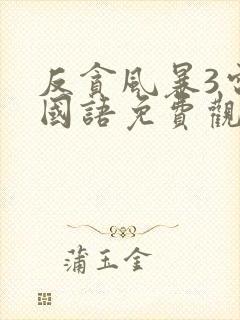 反貪風暴3
國語免費觀
蒲玉金